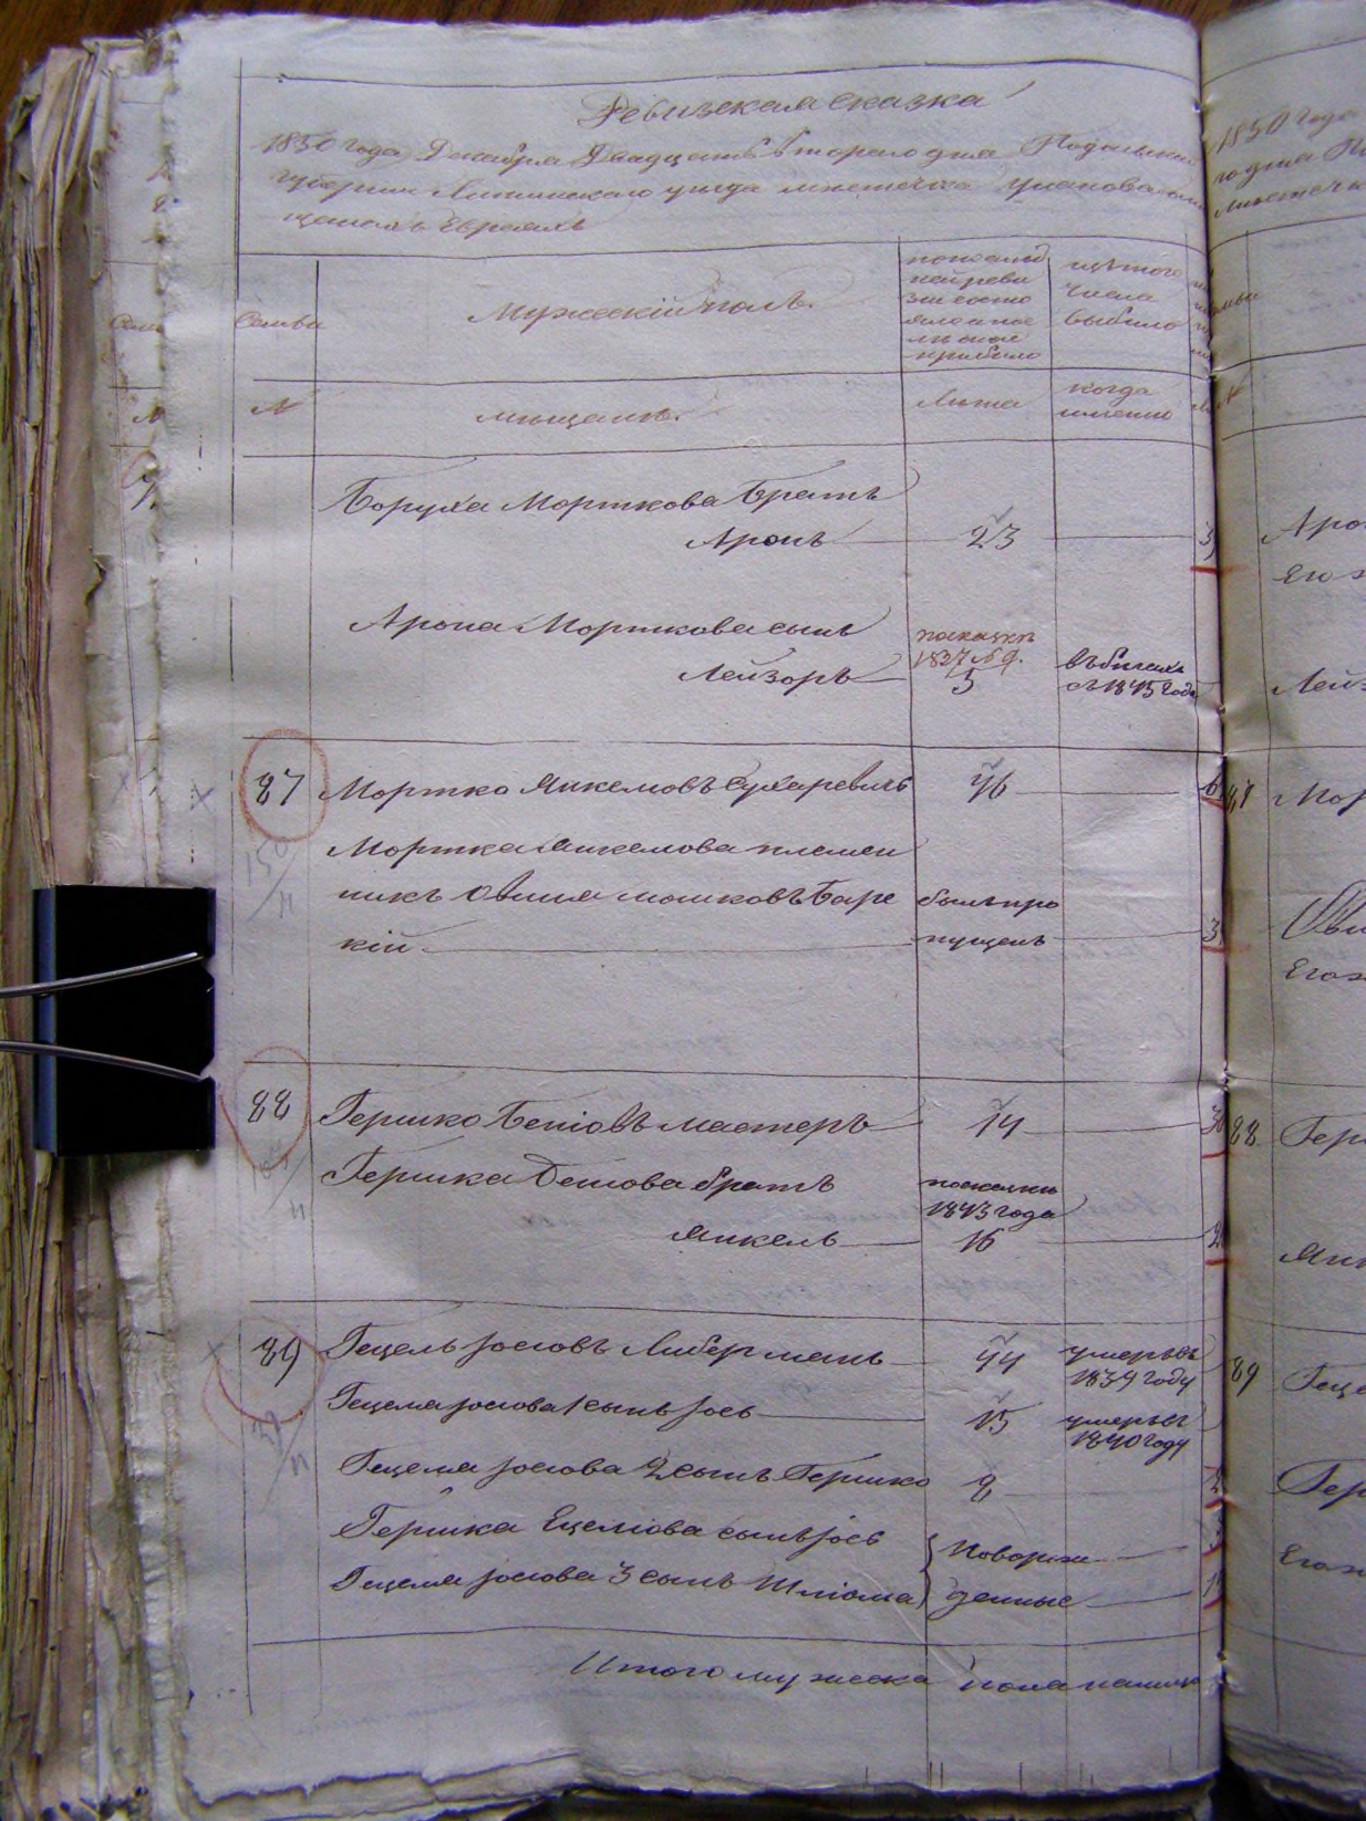 Ревизская сказка
1850 года Декабря Двадцать второго дня Подольской
губернии Литинского уезда местечка Уланова о ме
щанахъ Евреяхъ
Семьи
Мужескій полъ.
по послѣд
ней реви
зіи состо
яло и пос
лѣ оной
прибыло
изъ того
числа
выбыло
№
мещане.
Лѣта
когда
именно
Боруха Морткова братъ
Аронъ 23
Арона Морткова сынъ
Лейзоръ
по сказкѣ
1837 № 9.
5
въ бегахъ
съ 1845 года
87 Мортко Янкелевъ Сухаревичъ 46
Мортка Янкелова племен
никъ Овшия мошковъ Баре
кій
былъ про
пущенъ
88 Гершко Беніовъ мастеръ 14
Гершка Беніова братъ
Янкель
по сказки
1843 года
16
89 Гецель Іосіовъ Либерманъ 44 умеръ въ
1839 году
Гецеля Іосіова 1 сынъ Іось 15 умеръ въ
1840 году
Гецеля Іосіова 2 сынъ Гершко 8
Гершка Ецеліова сынъ Іосъ
Гецеля Іосіова 3 сынъ Шліома
Новорож
денные
Итого мужеска пола налицо
1850 года
Лейз
87 Мор
88 Гер
89 Геце
Гер